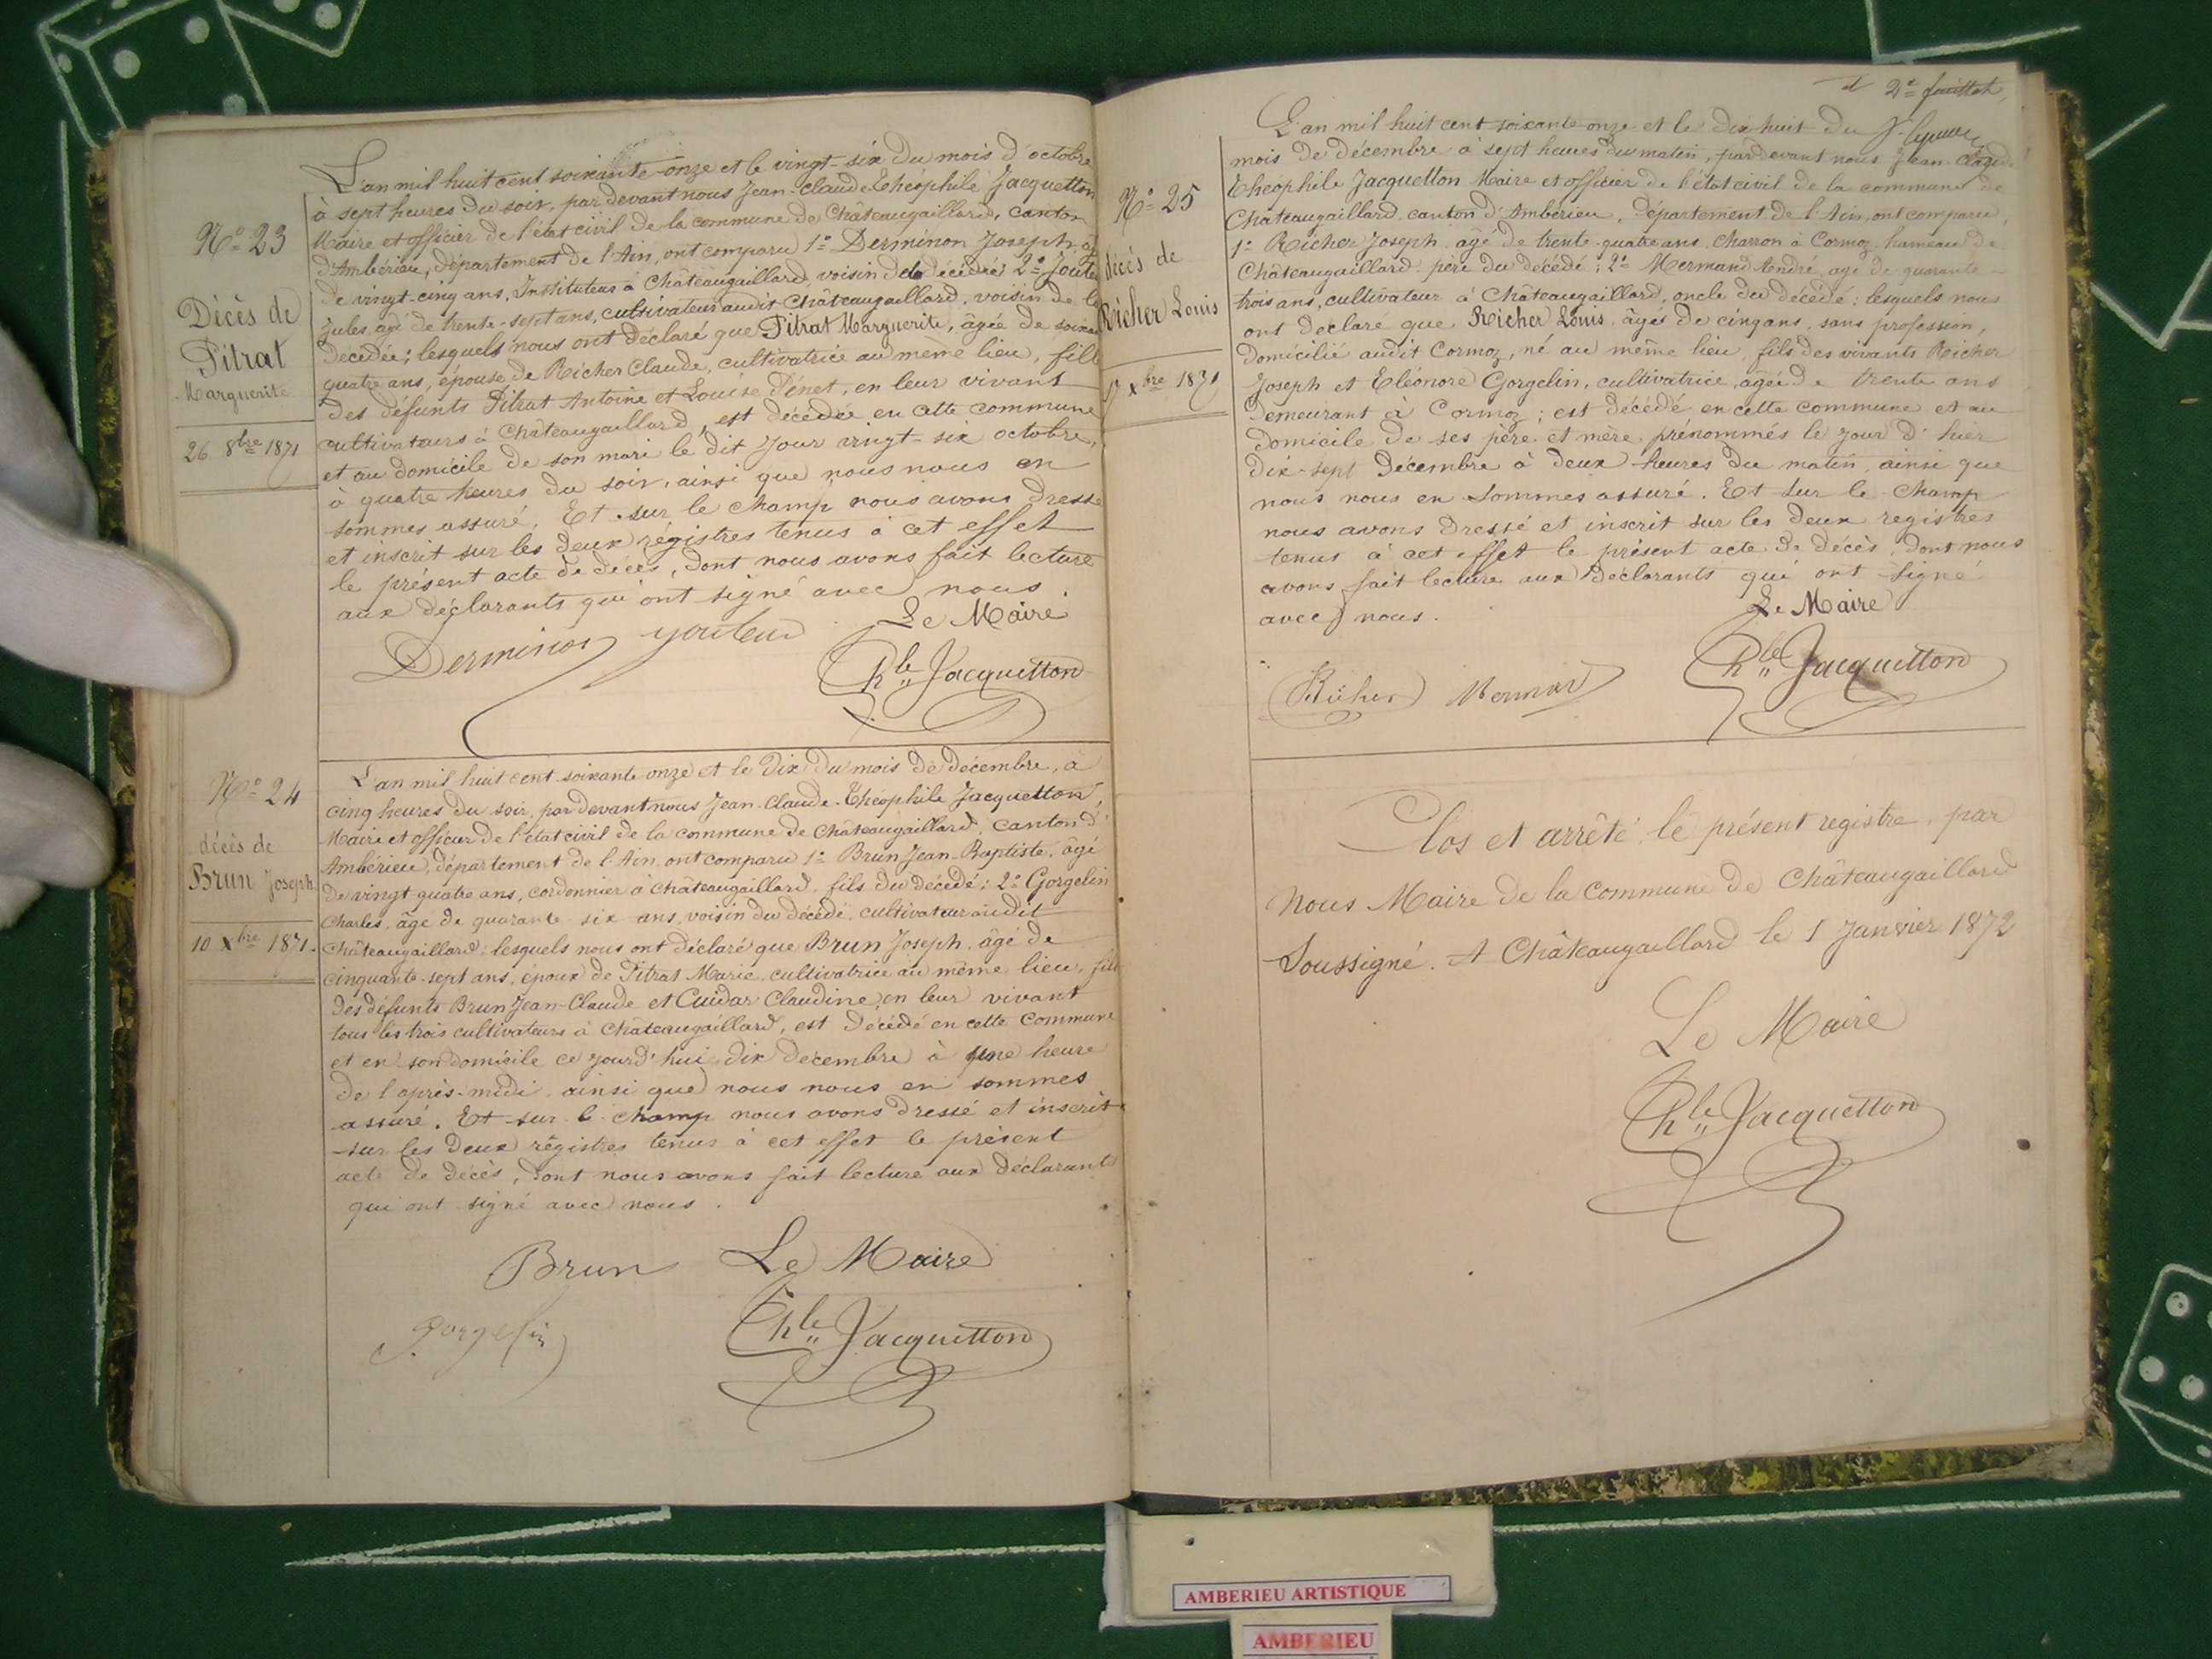 N° 23
Décès de
Pitrat
Marguerite
26 8bre 1871
L'an mil huit cent soixante-onze et le vingt-six du mois d'octobre
à sept heures du soir, par devant nous Jean-Claude-Théophile Jacquetton
Maire et officier de l'état civil de la commune de Châteaugaillard, canton
d'Ambérieu, département de l'Ain, ont comparu 1° Derminon Joseph
de vingt-cinq ans, Instituteur à Châteaugaillard, voisin de la décédée 2°
Jules, agé de trente-sept ans, cultivateur audit Châteaugaillard, voisin de la
décédée; lesquels nous ont déclaré que Pitrat Marguerite, âgée de
quatre ans, épouse de Richer Claude, cultivatrice au même lieu, fille
des défunts Pitrat Antoine et Louise Pénet, en leur vivant
cultivateurs à Châteaugaillard, est décédée en cette commune
et au domicile de son mari le dit jour vingt-six octobre,
à quatre heures du soir, ainsi que nous nous en
sommes assuré. Et sur le champ nous avons dressé
et inscrit sur les deux régistres tenus à cet effet
le présent acte de décès, dont nous avons fait lecture
aux déclarants qui ont signé avec nous.
Le Maire
Derminon
Thle Jacquetton
N° 24
décès de
Brun Joseph
10 Xbre 1871.
L'an mil huit cent soixante-onze et le dix du mois de décembre, à
cinq heures du soir, par devant nous Jean-Claude-Théophile Jacquetton,
Maire et officier de l'état civil de la commune de Châteaugaillard, canton d'
Ambérieu, département de l'Ain, ont comparu 1° Brun Jean-Baptiste, âgé
de vingt-quatre ans, cordonnier à Châteaugaillard, fils du décédé; 2° Gorgelin
Charles, âgé de quarante-six ans, voisin du décédé, cultivateur audit
Châteaugaillard; lesquels nous ont déclaré que Brun Joseph, âgé de
cinquante-sept ans, époux de Pitrat Marie, cultivatrice au même lieu, fils
des défunts Brun Jean-Claude et Cuidar Claudine, en leur vivant
tous les trois cultivateurs à Châteaugaillard, est décédé en cette commune
et en son domicile ce jourd'hui dix décembre à une heure
de l'après-midi, ainsi que nous nous en sommes
assuré. Et sur le champ nous avons dressé et inscrit
sur les deux régistres tenus à cet effet le présent
acte de décès, dont nous avons fait lecture aux déclarants
qui ont signé avec nous.
Brun Le Maire
Gorgelin Thle Jacquetton
N° 25
décès de
Richer Louis
17 Xbre 1871
L'an mil huit cent soixante-onze et le dix-huit du
mois de décembre à sept heures du matin, par devant nous Jean-Claude
Théophile Jacquetton Maire et officier de l'état civil de la commune de
Châteaugaillard, canton d'Ambérieu, département de l'Ain, ont comparu,
1° Richer Joseph, âgé de trente-quatre ans, charron à Cormoz, hameau de
Châteaugaillard, père du décédé; 2° Mermand André, agé de quarante-
trois ans, cultivateur à Châteaugaillard, oncle du décédé; lesquels nous
ont déclaré que Richer Louis, âgé de cinq ans, sans profession,
domicilié audit Cormoz, né au même lieu, fils des vivants Richer
Joseph et Eléonore Gorgelin, cultivatrice, âgée de trente ans
demeurant à Cormoz; est décédé en cette commune et au
domicile de ses père et mère prénommés le jour d'hier
dix-sept décembre à deux heures du matin, ainsi que
nous nous en sommes assuré. Et sur le champ
nous avons dressé et inscrit sur les deux registres
tenus à cet effet le présent acte de décès, dont nous
avons fait lecture aux déclarants qui ont signé
avec nous.
Le Maire
Richer Mermand Thle Jacquetton
Clos et arrêté le présent registre, par
Nous Maire de la commune de Châteaugaillard
Soussigné. A Châteaugaillard le 1 Janvier 1872
Le Maire
Thle Jacquetton
AMBERIEU ARTISTIQUE
AMBERIEU